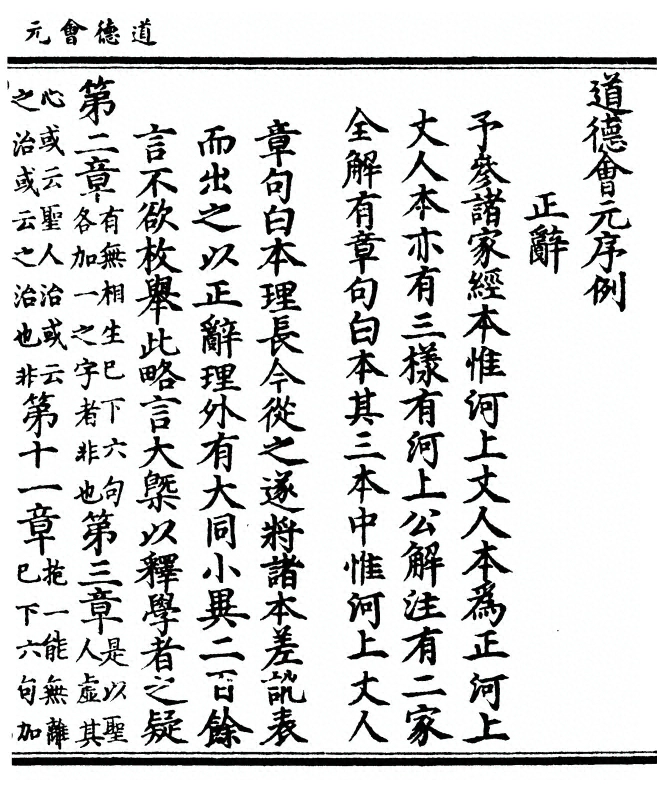 道德會元
道德會元序例
正辭
予參諸家經本惟河上丈人本爲正河上
丈人本亦有三樣有河上公解注有二家
全解有章句白本其三本中惟河上丈人
章句白本理長今從之遂將諸本差訛表
而出之以正辭理外有大同小異二百餘
言不欲枚舉此略言大槩以釋學者之疑
第二章有無相生已下六句各加一之字者非也第三章是以聖人虛其
心或云聖人治或云之治或云之治也非第十一章抱一能無離已下六句加